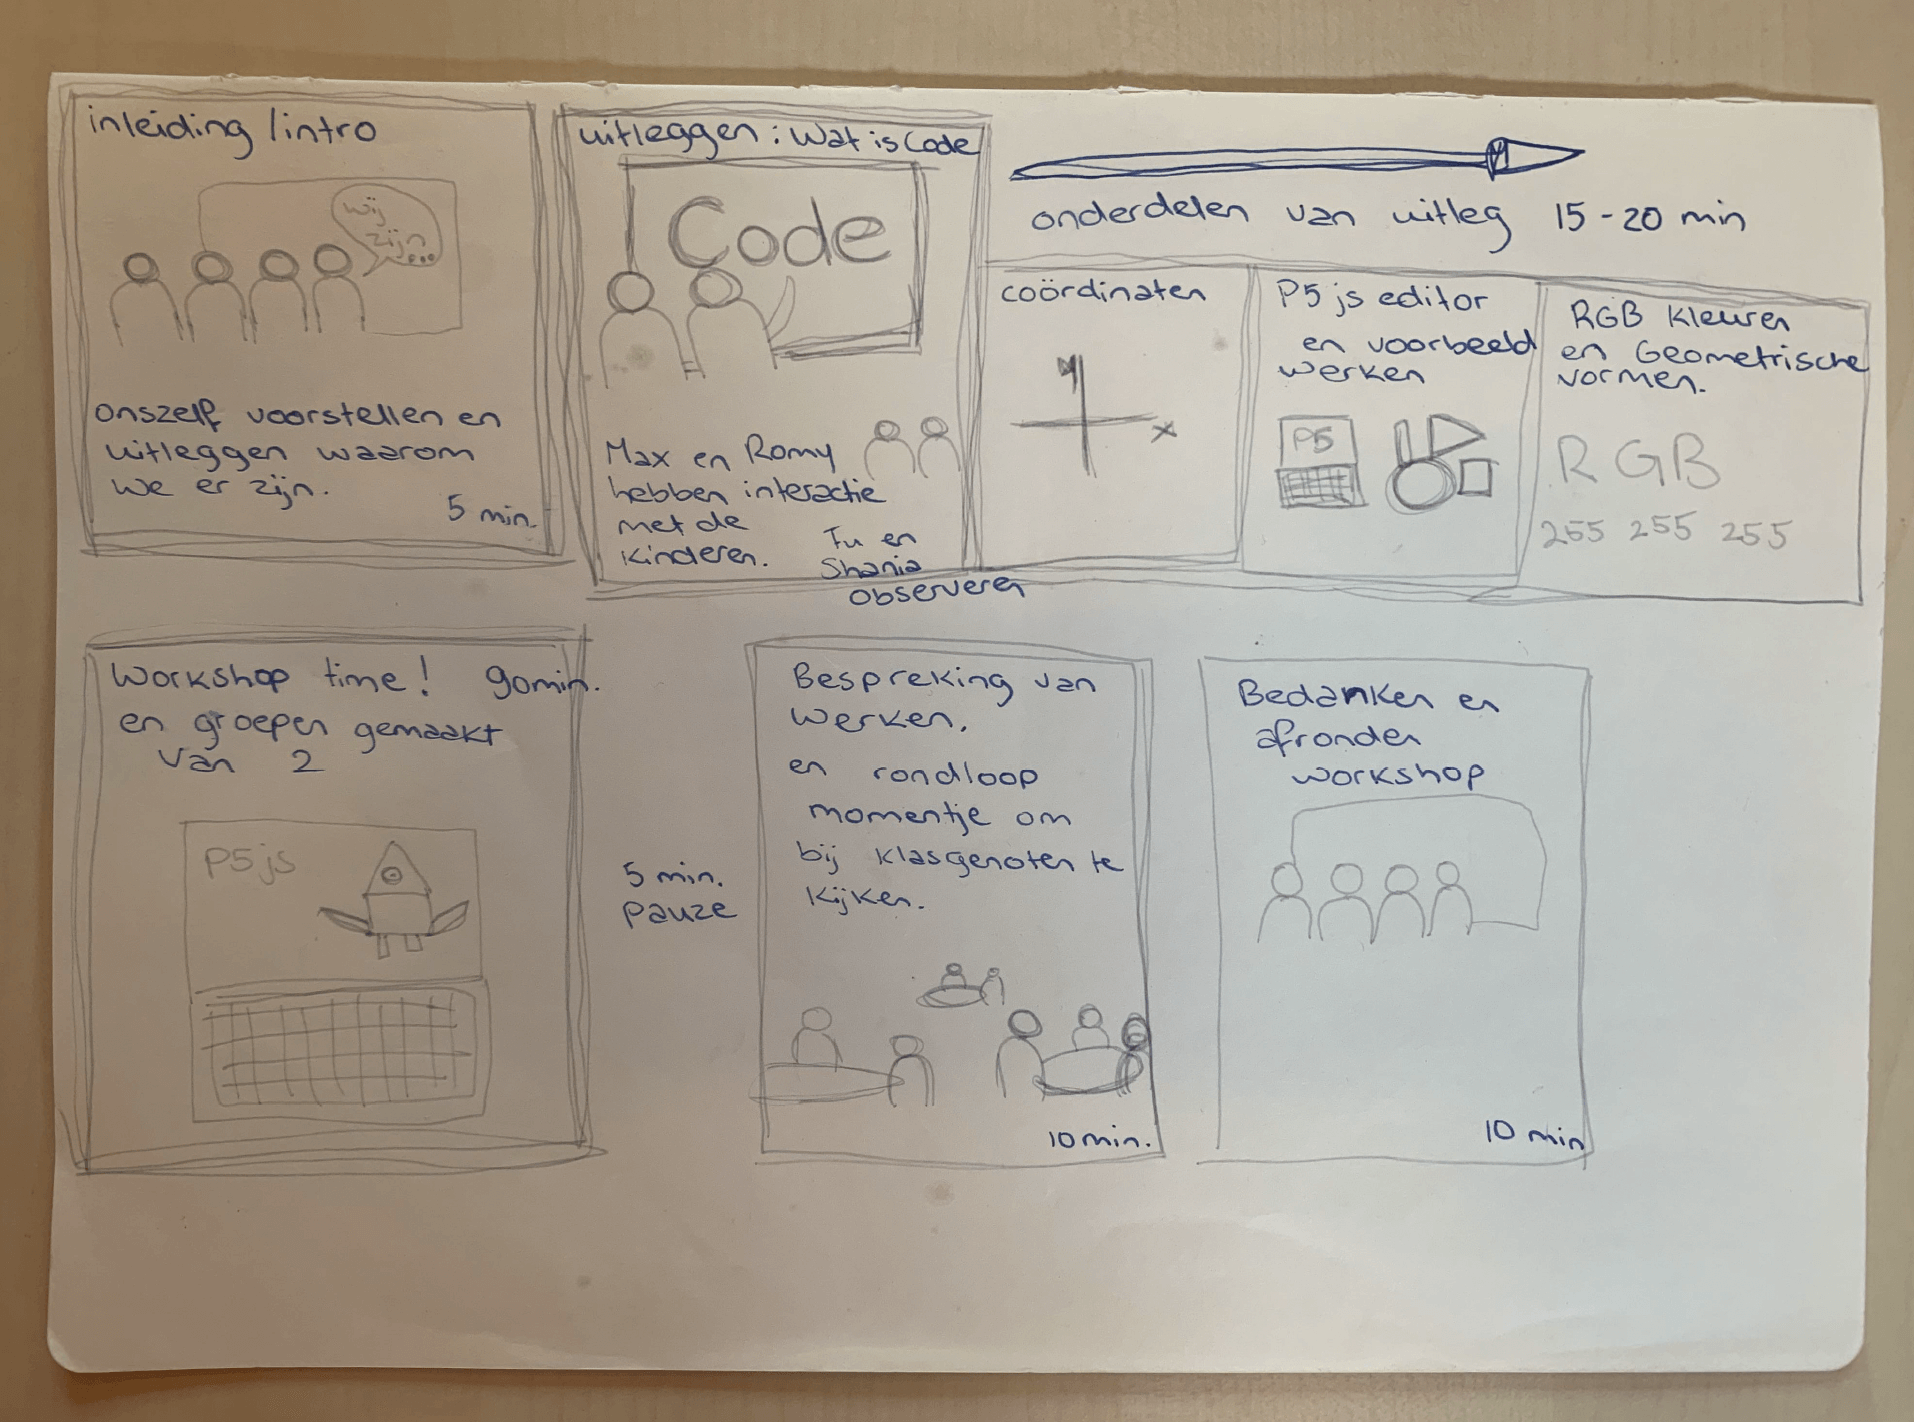 inleiding / intro
wij
zijn...
onszelf voorstellen en
uitleggen waarom
we er zijn.
5 min.
uitleggen : Wat is Code
Code
Max en Romy
hebben interactie
met de
kinderen.
Fu en
Shania
observeren
onderdelen van uitleg 15 - 20 min
coördinaten
y
x
P5 js editor
en voorbeeld
werken
P5
RGB kleuren
en Geometrische
vormen.
R G B
255 255 255
Workshop time! 90min.
en groepen gemaakt
van 2
P5js
5 min.
pauze
Bespreking van
werken.
en rondloop
momentje om
bij klasgenoten te
kijken.
10 min.
Bedanken en
afronden
workshop
10 min